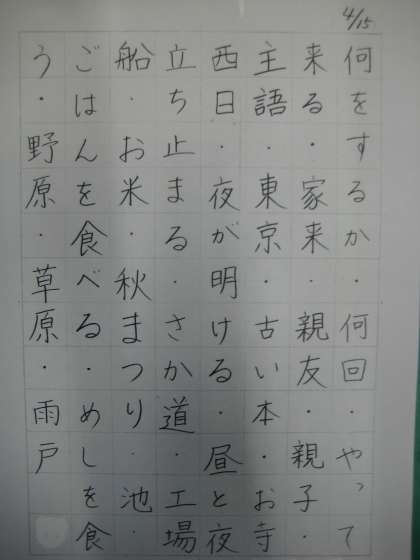 4/15
何をするか・何回やって
来る・家来・親友・親子・
主語・東京・古い本・お寺
西日・夜が明ける・昼と夜
立ち止まる・さかる道・工場
船・お米・秋まつり・池
ごはんを食べる・めしを食
う・野原・草原・雨戸